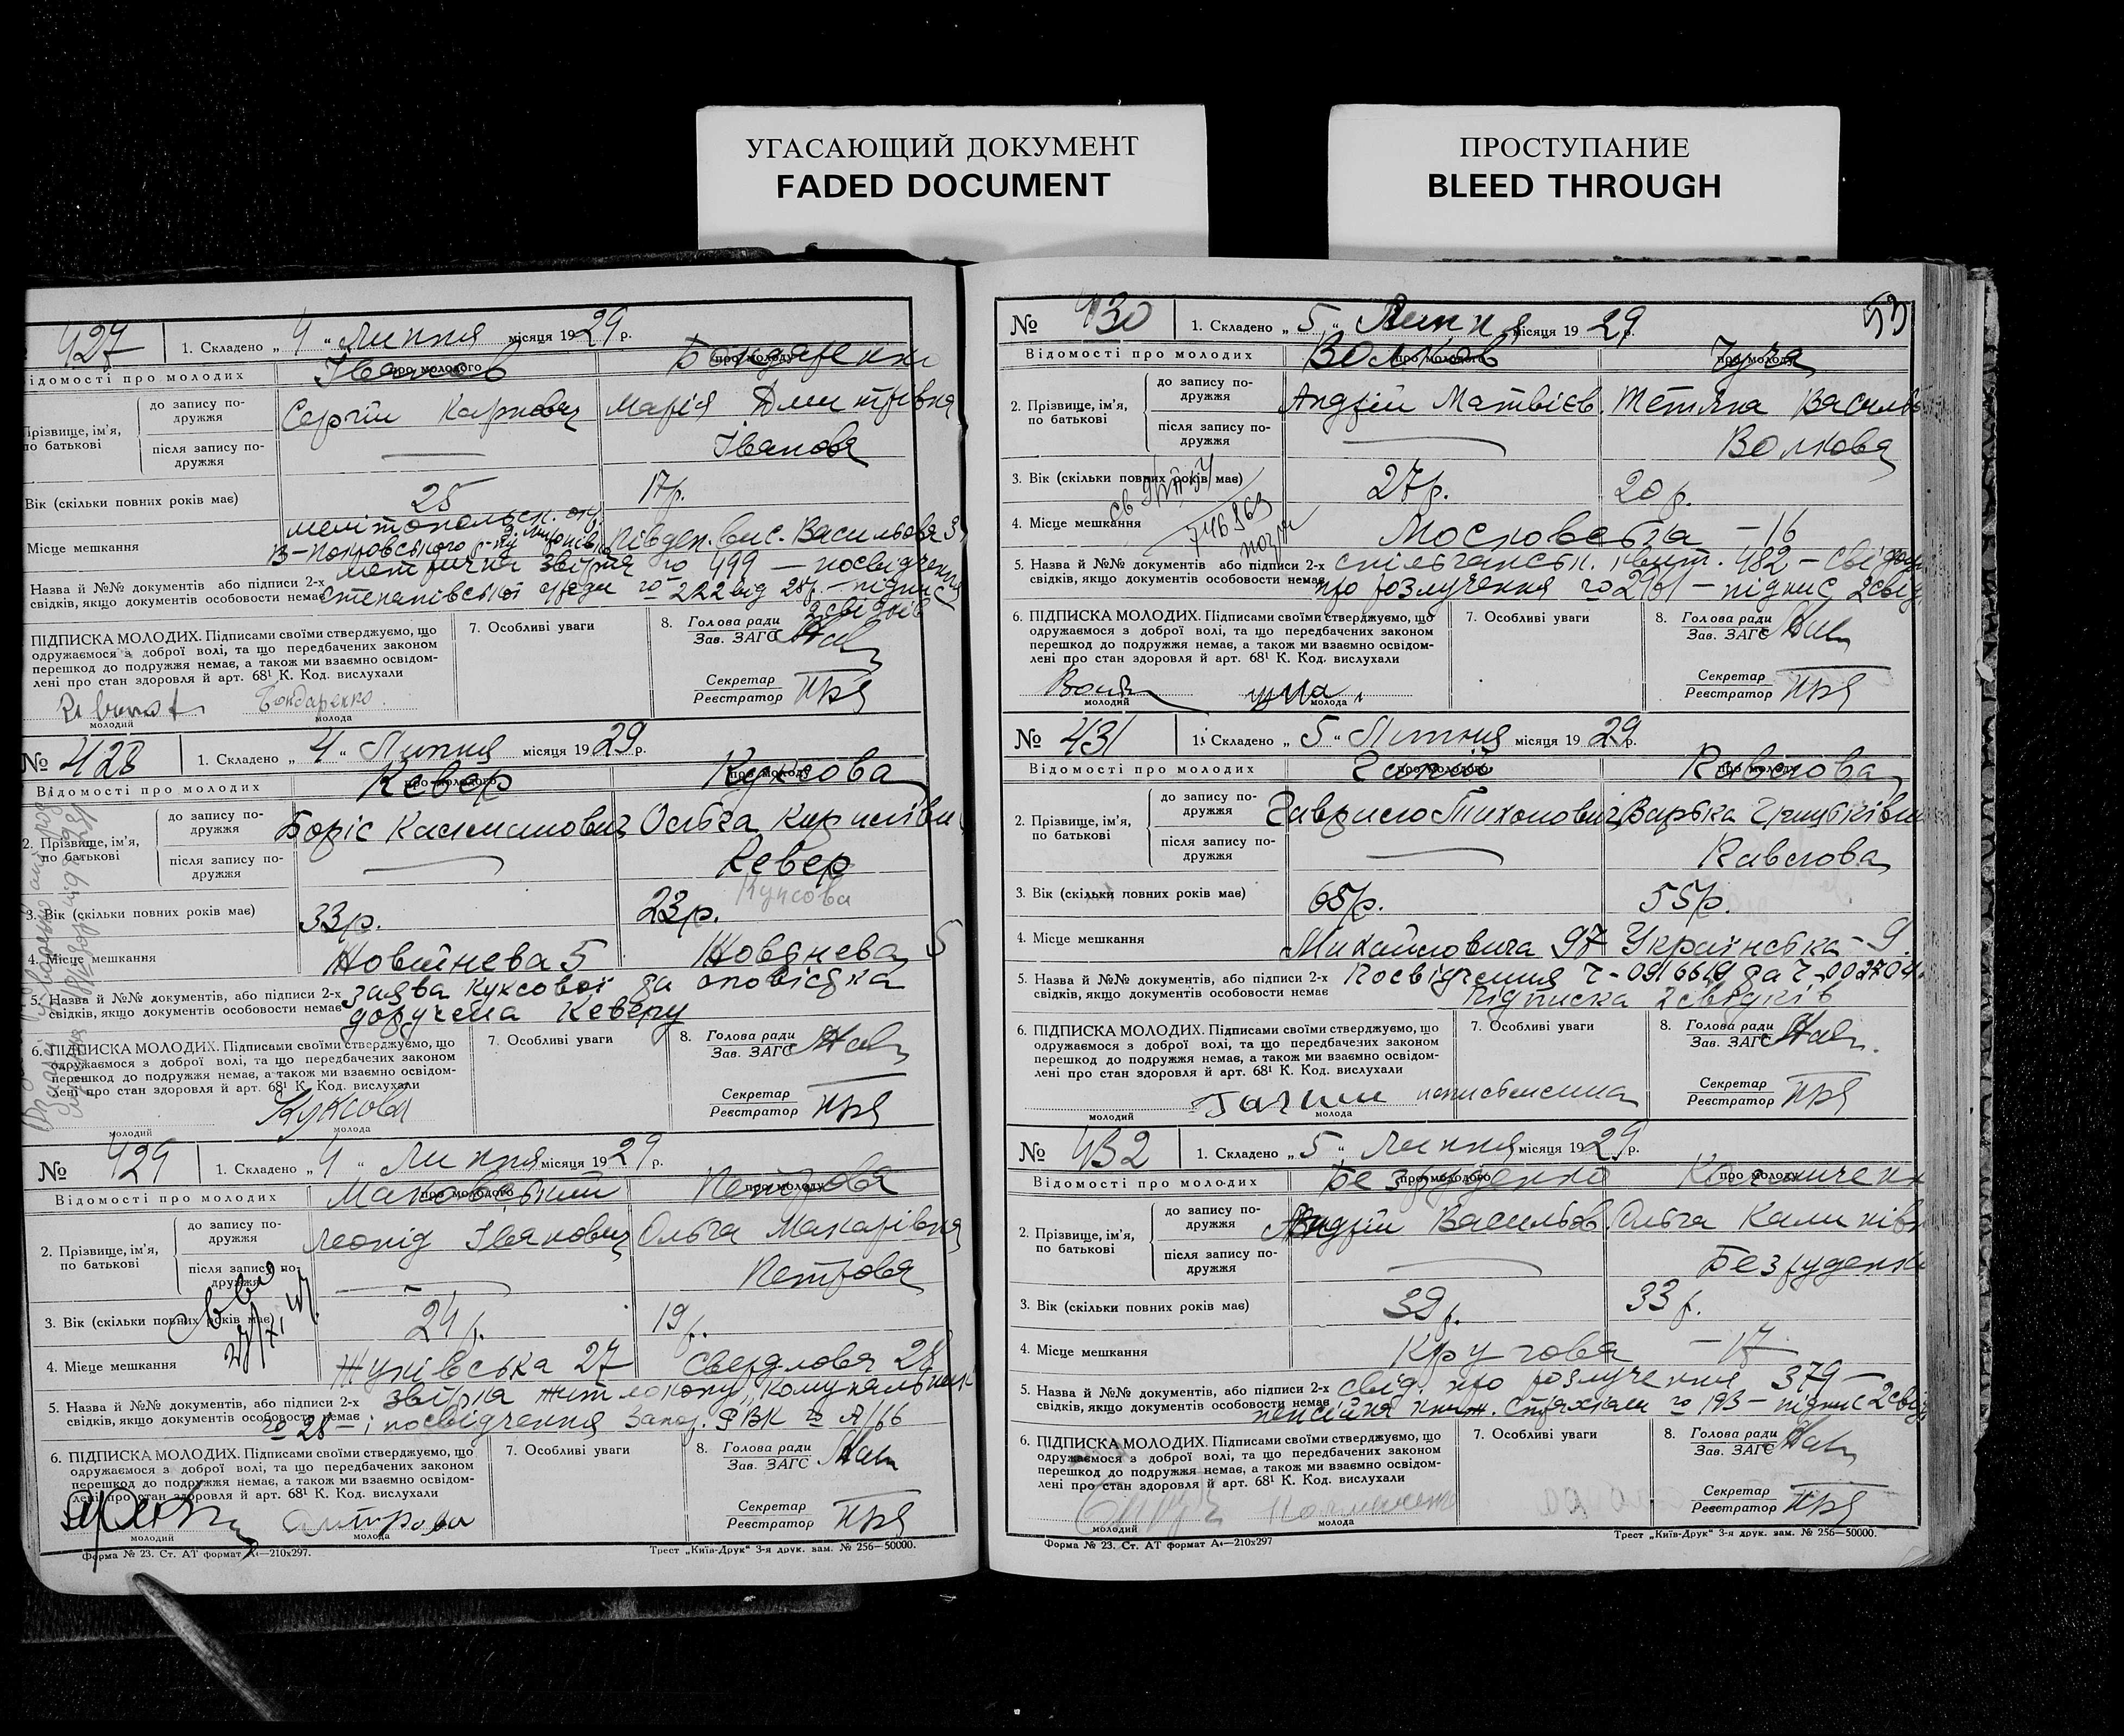 УГАСАЮЩИЙ ДОКУМЕНТ
FADED DOCUMENT
ПРОСТУПАНИЕ
BLEED THROUGH
427
1. Складено „ 4 " Липня місяця 1929 р.
ідомості про молодих
про молодого
про молоду
Іванов
Бондаренко
до запису по-
дружжя
Сергій Карпович
Марія Дмитрівна
Прізвище, ім'я,
по батькові
після запису по-
дружжя
Іванова
Вік (скільки повних років має)
25
17р.
Місце мешкання
Півден. вис. Васильовка 3
Назва й №№ документів або підписи 2-х
свідків, якщо документів особовости немає
метрична звірка № 499 — посвідчення
222 від 28р. — підпис
2 свідків
ПІДПИСКА МОЛОДИХ. Підписами своїми стверджуємо, що
одружаємося з доброї волі, та що передбачених законом
перешкод до подружжя немає, а також ми взаємно освідом-
лені про стан здоровля й арт. 68¹ К. Код. вислухали
7. Особливі уваги
8. Голова ради
Зав. ЗАГС
Секретар
Реєстратор
Бондаренко
молодий
молода
№ 428
1. Складено „ 4 " Липня місяця 1929 р.
Відомості про молодих
про молодого
про молоду
Кевер
Куксова
до запису по-
дружжя
Боріс Касманович
Ольга Кирилівн
2. Прізвище, ім'я,
по батькові
після запису по-
дружжя
Кевер
Куксова
3. Вік (скільки повних років має)
33р.
23р.
4. Місце мешкання
5
5
5. Назва й №№ документів, або підписи 2-х
свідків, якщо документів особовости немає
заява Куксової за оповістка
доручена Keверу
6. ПІДПИСКА МОЛОДИХ. Підписами своїми стверджуємо, що
одружаємося з доброї волі, та що передбачених законом
перешкод до подружжя немає, а також ми взаємно освідом-
лені про стан здоровля й арт. 68¹ К. Код. вислухали
7. Особливі уваги
8. Голова ради
Зав. ЗАГС
Секретар
Реєстратор
Куксова
молодий
молода
№ 429
1. Складено „ 4 " Липня місяця 1929 р.
Відомості про молодих
про молодого
про молоду
Маковський
Петрова
до запису по-
дружжя
Леонід Іванович
Ольга Макарівна
2. Прізвище, ім'я,
по батькові
після запису по-
дружжя
Петрова
3. Вік (скільки повних років має)
24р.
19р.
4. Місце мешкання
Жуківська 27
Свердлова 28
5. Назва й №№ документів, або підписи 2-х
свідків, якщо документів особовости немає
звірка житлокопу
№ 28 — і посвідчення Запор. РВК № А/66
6. ПІДПИСКА МОЛОДИХ. Підписами своїми стверджуємо, що
одружаємося з доброї волі, та що передбачених законом
перешкод до подружжя немає, а також ми взаємно освідом-
лені про стан здоровля й арт. 68¹ К. Код. вислухали
7. Особливі уваги
8. Голова ради
Зав. ЗАГС
Секретар
Реєстратор
молодий
молода
Форма № 23. Ст. АТ формат А₄—210х297.
Трест „Київ-Друк" 3-я друк. зам. № 256—50000.
53
№ 430
1. Складено „ 5 " Липня місяця 1929 р.
Відомості про молодих
про молодого
про молоду
Волков
Чуча
до запису по-
дружжя
Андрій Матвієв.
Тетяна Василів
2. Прізвище, ім'я,
по батькові
після запису по-
дружжя
Волкова
3. Вік (скільки повних років має)
27р.
20р.
4. Місце мешкання
Московська — 16
5. Назва й №№ документів або підписи 2-х
свідків, якщо документів особовости немає
спілчанськ. квит. 482 — свідоц
про розлучення № 261 — підпис 2 свід.
6. ПІДПИСКА МОЛОДИХ. Підписами своїми стверджуємо, що
одружаємося з доброї волі, та що передбачених законом
перешкод до подружжя немає, а також ми взаємно освідом-
лені про стан здоровля й арт. 68¹ К. Код. вислухали
7. Особливі уваги
8. Голова ради
Зав. ЗАГС
Секретар
Реєстратор
молодий
молода
№ 431
1. Складено „ 5 " Липня місяця 1929 р.
Відомості про молодих
про молодого
про молоду
до запису по-
дружжя
Гаврило Тихонович
Варька
2. Прізвище, ім'я,
по батькові
після запису по-
дружжя
3. Вік (скільки повних років має)
65р.
55р.
4. Місце мешкання
Михайловича 97
Українська — 9
5. Назва й №№ документів, або підписи 2-х
свідків, якщо документів особовости немає
Посвідчення
Підписка 2 свідків
6. ПІДПИСКА МОЛОДИХ. Підписами своїми стверджуємо, що
одружаємося з доброї волі, та що передбачених законом
перешкод до подружжя немає, а також ми взаємно освідом-
лені про стан здоровля й арт. 68¹ К. Код. вислухали
7. Особливі уваги
8. Голова ради
Зав. ЗАГС
Секретар
Реєстратор
неписьменна
молодий
молода
№ 432
1. Складено „ 5 " Липня місяця 1929 р.
Відомості про молодих
про молодого
про молоду
Безруденко
до запису по-
дружжя
Андрій Васильов.
Ольга Калинівн
2. Прізвище, ім'я,
по батькові
після запису по-
дружжя
Безруденко
3. Вік (скільки повних років має)
39р.
33р.
4. Місце мешкання
Кругова — 17
5. Назва й №№ документів, або підписи 2-х
свідків, якщо документів особовости немає
свід. про розлучення 379 —
пенсійна книж. Страхкаси № 193 — підпис 2 свід
6. ПІДПИСКА МОЛОДИХ. Підписами своїми стверджуємо, що
одружаємося з доброї волі, та що передбачених законом
перешкод до подружжя немає, а також ми взаємно освідом-
лені про стан здоровля й арт. 68¹ К. Код. вислухали
7. Особливі уваги
8. Голова ради
Зав. ЗАГС
Секретар
Реєстратор
молодий
молода
Форма № 23. Ст. АТ формат А₄—210х297
Трест „Київ-Друк" 3-я друк. зам. № 256—50000.